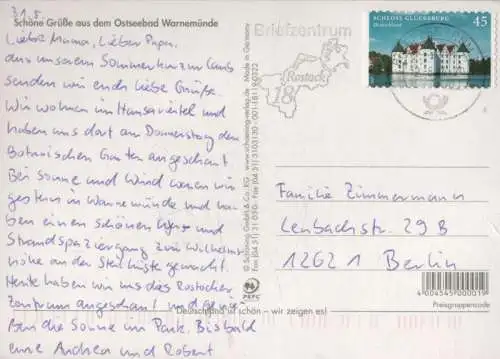 Schöne Grüße aus dem Ostseebad Warnemünde
31.5.
Liebe Mama, Lieber Papa,
aus unserem Sommerkurzurlaub
senden wir euch liebe Grüße.
Wir wohnen im Hansaviertel und
haben uns dort am Donnerstag den
Botanischen Garten angeschaut
Bei Sonne und Wind waren wir
gestern in Warnemünde und ha-
ben einen schönen
Strandspaziergang zur Wilhelms-
höhe an der Steilküste gemacht.
Heute haben wir uns das Rostocker
Zentrum angeschaut und genie-
ßen die Sonne im Park. Bis bald
eure Andrea und Robert
Deutschland ist schön – wir zeigen es!
© Schöning GmbH & Co. KG · Fax (04 51) 3 10 33 30 · 001-18119-0322
www.schoening-verlag.de · Made in Germany
PEFC
Briefzentrum
Rostock
18
SCHLOSS GLÜCKSBURG
Deutschland
45
Familie Zimmermann
Lenbachstr. 29B
12621 Berlin
4 004545 000019
Preisgruppencode